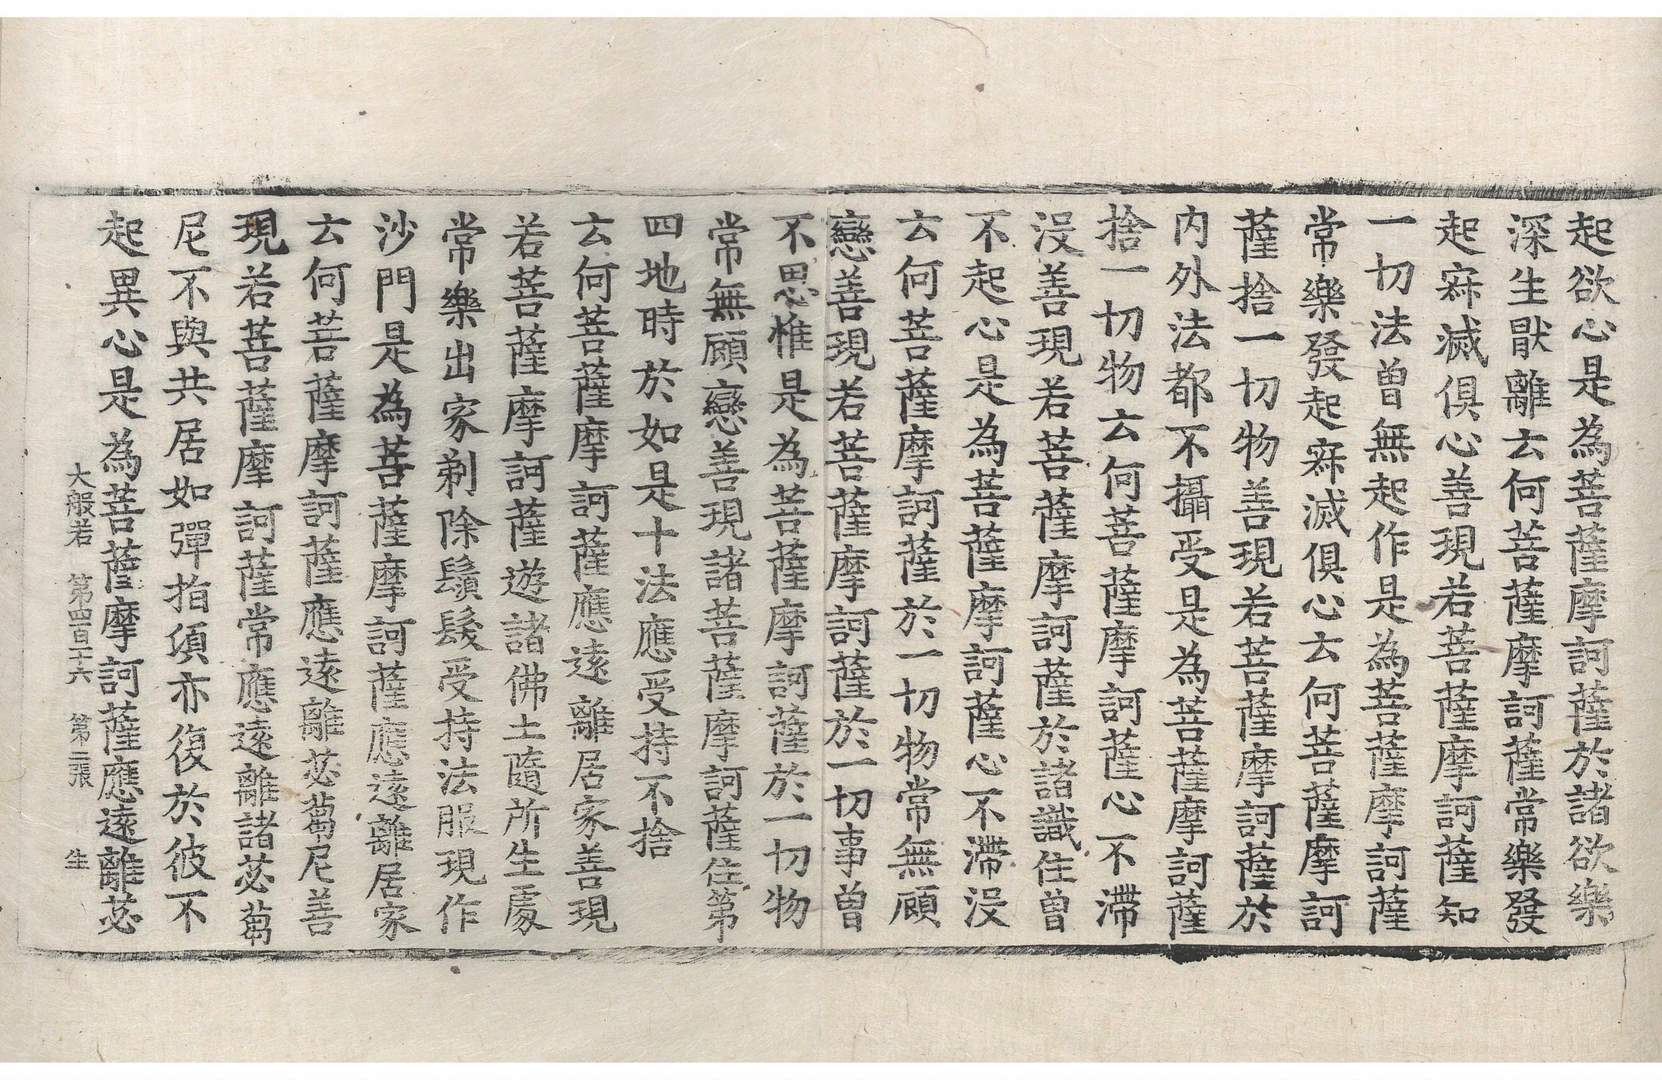 起欲心是為菩薩摩訶薩於諸欲樂
深生猒離云何菩薩摩訶薩常樂發
起寂滅俱心善現若菩薩摩訶薩知
一切法曾無起作是為菩薩摩訶薩
常樂發起寂滅俱心云何菩薩摩訶
薩捨一切物善現若菩薩摩訶薩於
内外法都不攝受是為菩薩摩訶薩
捨一切物云何菩薩摩訶薩心不滯
没善現若菩薩摩訶薩於諸識住曾
不起心是為菩薩摩訶薩心不滯没
云何菩薩摩訶薩於一切物常無顧
戀善現若菩薩摩訶薩於一切事曾
不思惟是為菩薩摩訶薩於一切物
常無顧戀善現諸菩薩摩訶薩住第
四地時於如是十法應受持不捨
云何菩薩摩訶薩應遠離居家善現
若菩薩摩訶薩遊諸佛土隨所生處
常樂出家剃除鬚髮受持法服現作
沙門是為菩薩摩訶薩應遠離居家
云何菩薩摩訶薩應遠離苾蒭尼善
現若菩薩摩訶薩常應遠離諸苾蒭
尼不與共居如彈指頃亦復於彼不
起異心是為菩薩摩訶薩應遠離苾
大般若 第四百十六 第二張 生